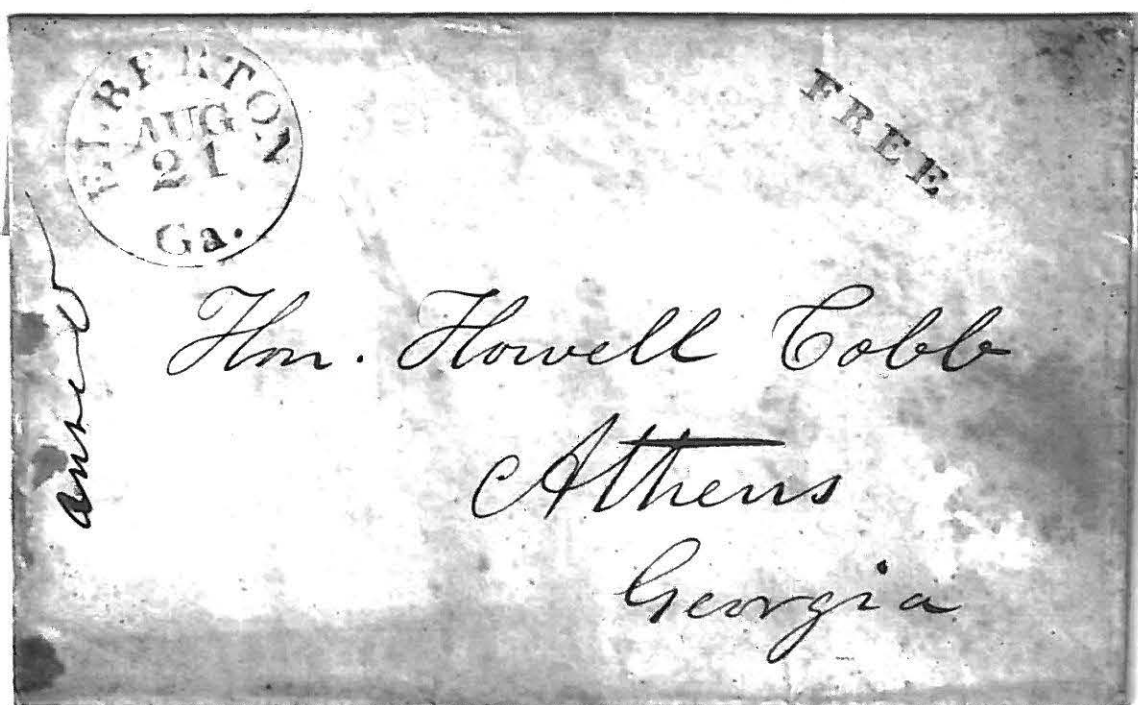 ELBERTON
AUG
21
Ga.
FREE
Hon. Howell Cobb
Athens
Georgia